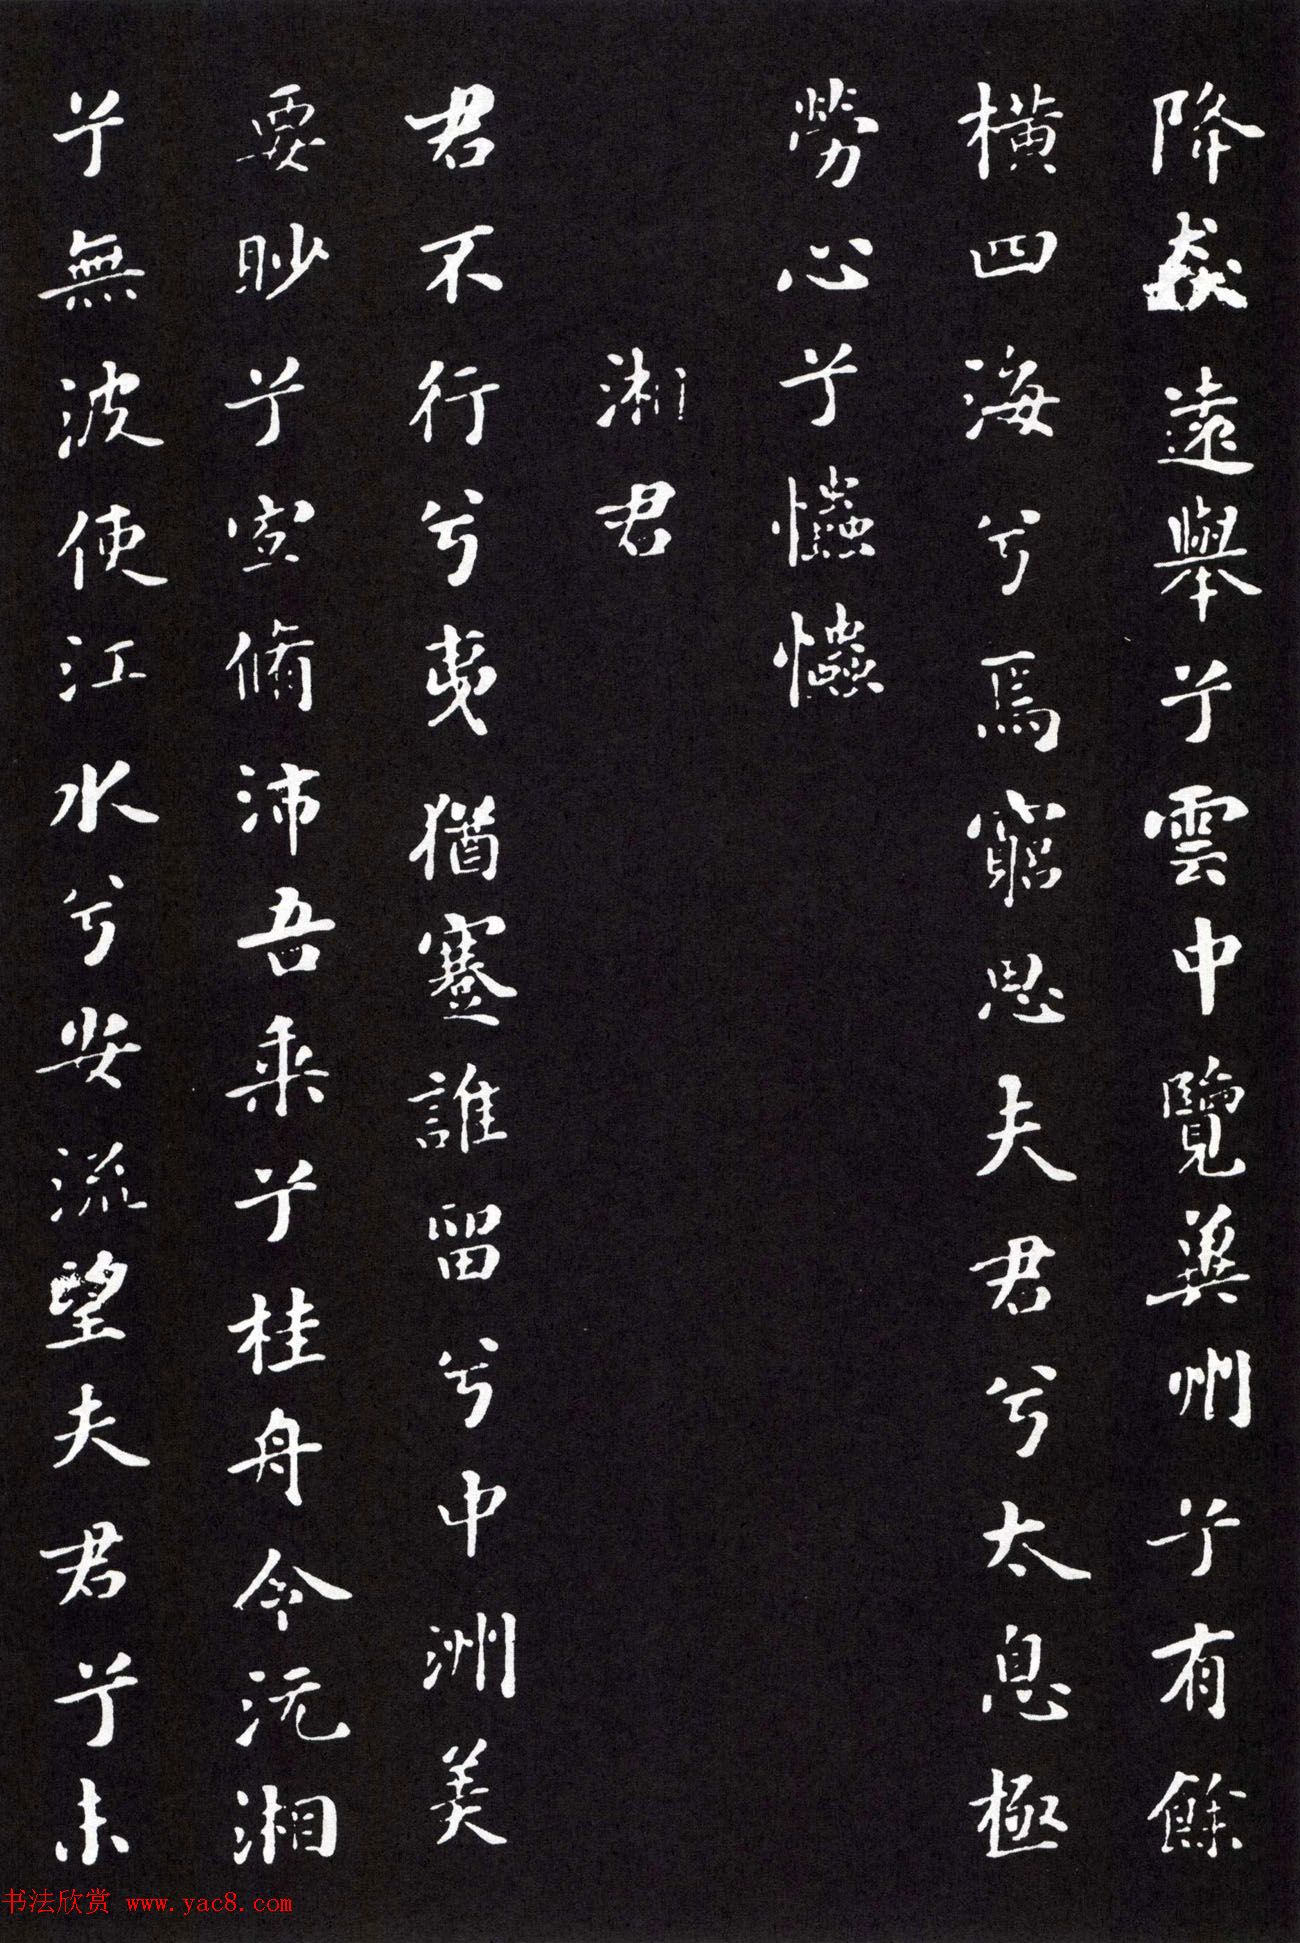 降猋遠舉兮雲中覽兾州兮有餘
橫四海兮焉窮思夫君兮太息極
勞心兮㦂㦂
湘君
君不行兮夷猶蹇誰留兮中洲美
要眇兮宜脩沛吾乘兮桂舟令沅湘
兮無波使江水兮安流望夫君兮未
书法欣赏 www.yac8.com